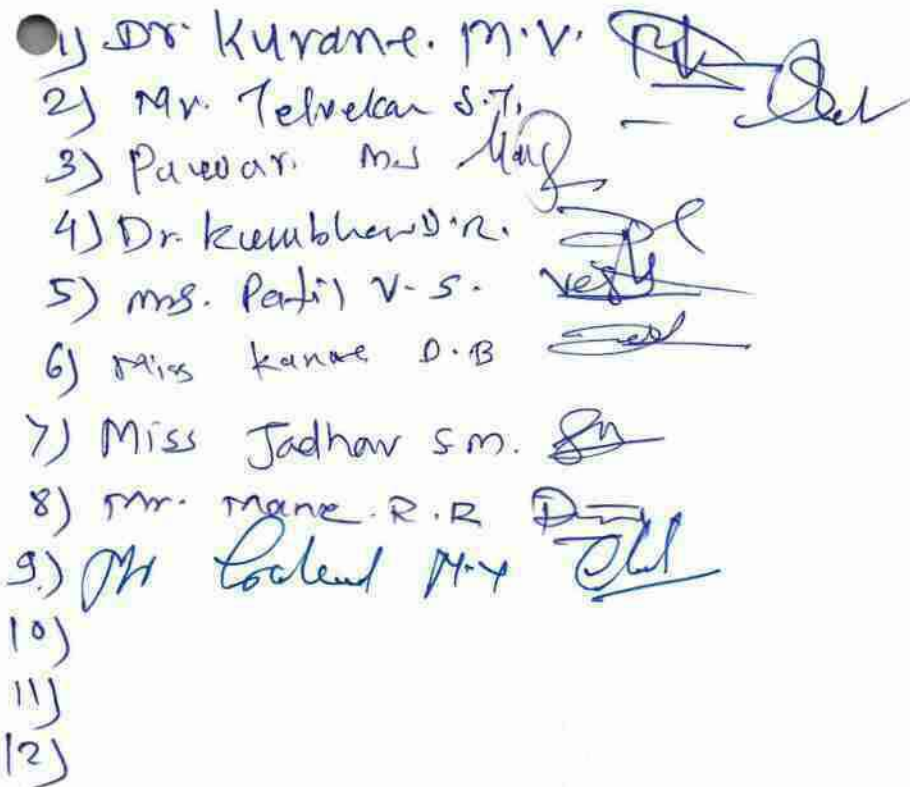 1) Dr. Kurane. M.V.
2) Mr. Telvekar S.T.
3) Pawar. M.S
4) Dr. Kumbhar D.R.
5) Ms. Patil V.S.
6) Miss Kanae D.B
7) Miss Jadhav S.M.
8) Mr. Mane. R.R
9.) Mr
10)
11)
12)